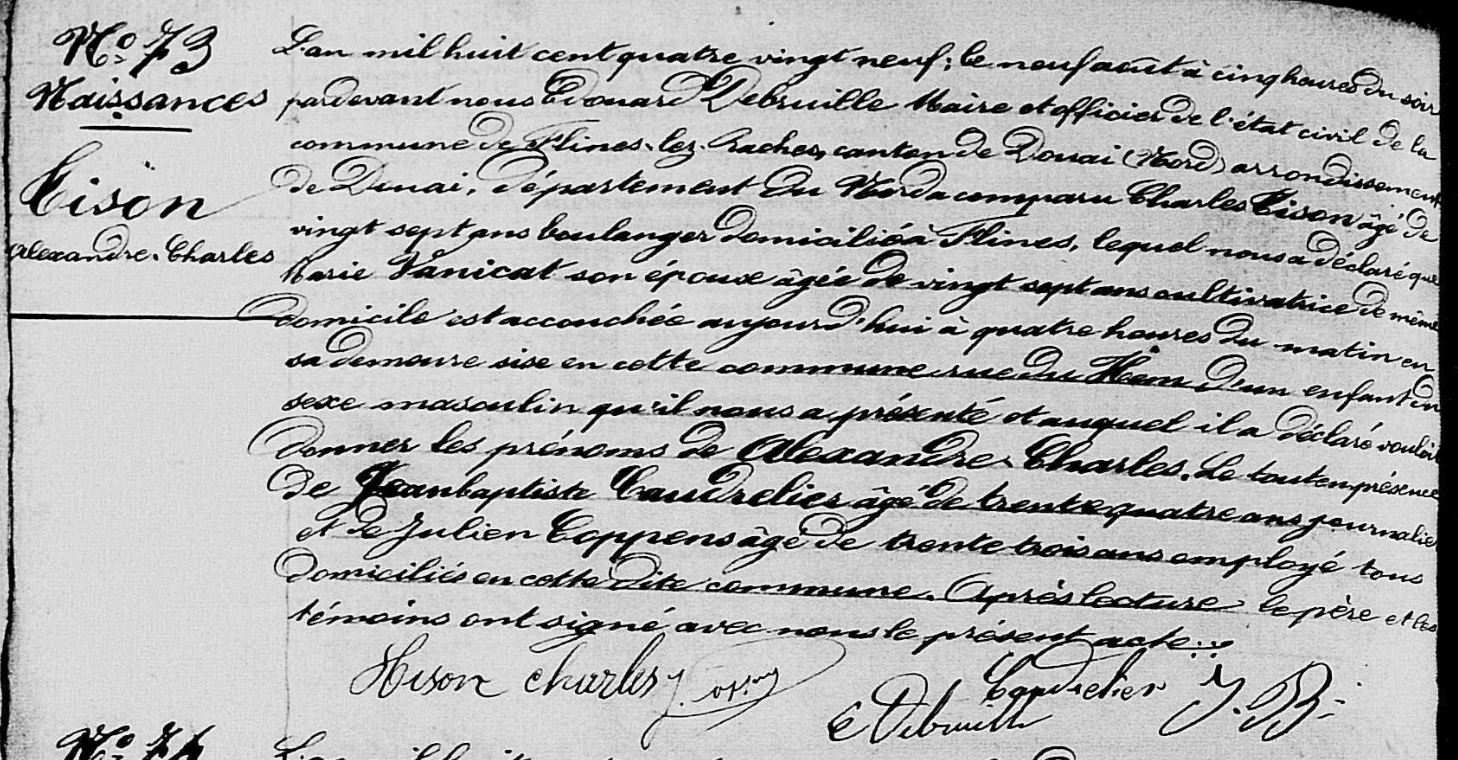 No. 73
Naissances
Tison
Alexandre. Charles
L'an mil huit cent quatre vingt neuf; le neuf août à cinq heures du soir
par devant nous Edouard Debruille Maire et officier de l'état civil de la
commune de Flines-lez-Raches, canton de Douai (Nord) arrondissement
de Douai, département du Nord a comparu Charles Tison âgé de
vingt sept ans boulanger domicilié à Flines, lequel nous a déclaré que
Marie Vanicat son épouse âgée de vingt sept ans cultivatrice de même
domicile est accouchée aujourd'hui à quatre heures du matin en
sa demeure sise en cette commune rue du Hem d'un enfant du
sexe masculin qu'il nous a présenté et auquel il a déclaré vouloir
donner les prénoms de Alexandre. Charles. Le tout en présence
de Jean baptiste Caudrelier âgé de trente quatre ans journalier
et de Julien Coppens âgé de trente trois ans employé tous
domiciliés en cette dite commune. Après lecture le père et les
témoins ont signé avec nous le présent acte
Tison charles
Caudrelier
E Debruille
No. 74